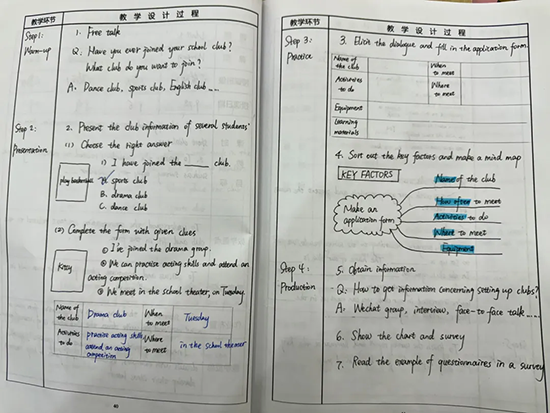 教学环节
教 学 设 计 过 程
Step 1:
Warm-up
1. Free talk
Q: Have you ever joined your school club?
What club do you want to join?
A: Dance club, sports club, English club ......
Step 2:
Presentation
2. Present the club information of several students'
(1) Choose the right answer
1) I have joined the ______ club.
play basketball
A. sports club
B. drama club
C. dance club
(2) Complete the form with given clues
Kitty
① I've joined the drama group.
② We can practise acting skills and attend an
acting competition.
③ We meet in the school theater, on Tuesday.
Name of
the club
Drama club
When
to meet
Tuesday
Activities
to do
practise acting skills
attend an acting
competition
Where
to meet
in the school theater
教学环节
教 学 设 计 过 程
Step 3:
Practice
3. Elicit the dialogue and fill in the application form.
Name of
the club
When
to meet
Activities
to do
Where
to meet
Equipment
Learning
materials
4. Sort out the key factors and make a mind map
KEY FACTORS
Make an
application form
Name of the club
How often to meet
Activities to do
Where to meet
Equipment
Step 4:
Production
5. Obtain information
Q: How to get information concerning setting up clubs?
A: Wechat group, interview, face-to face talk......
6. Show the chart and survey
7. Read the example of questionnaires in a survey